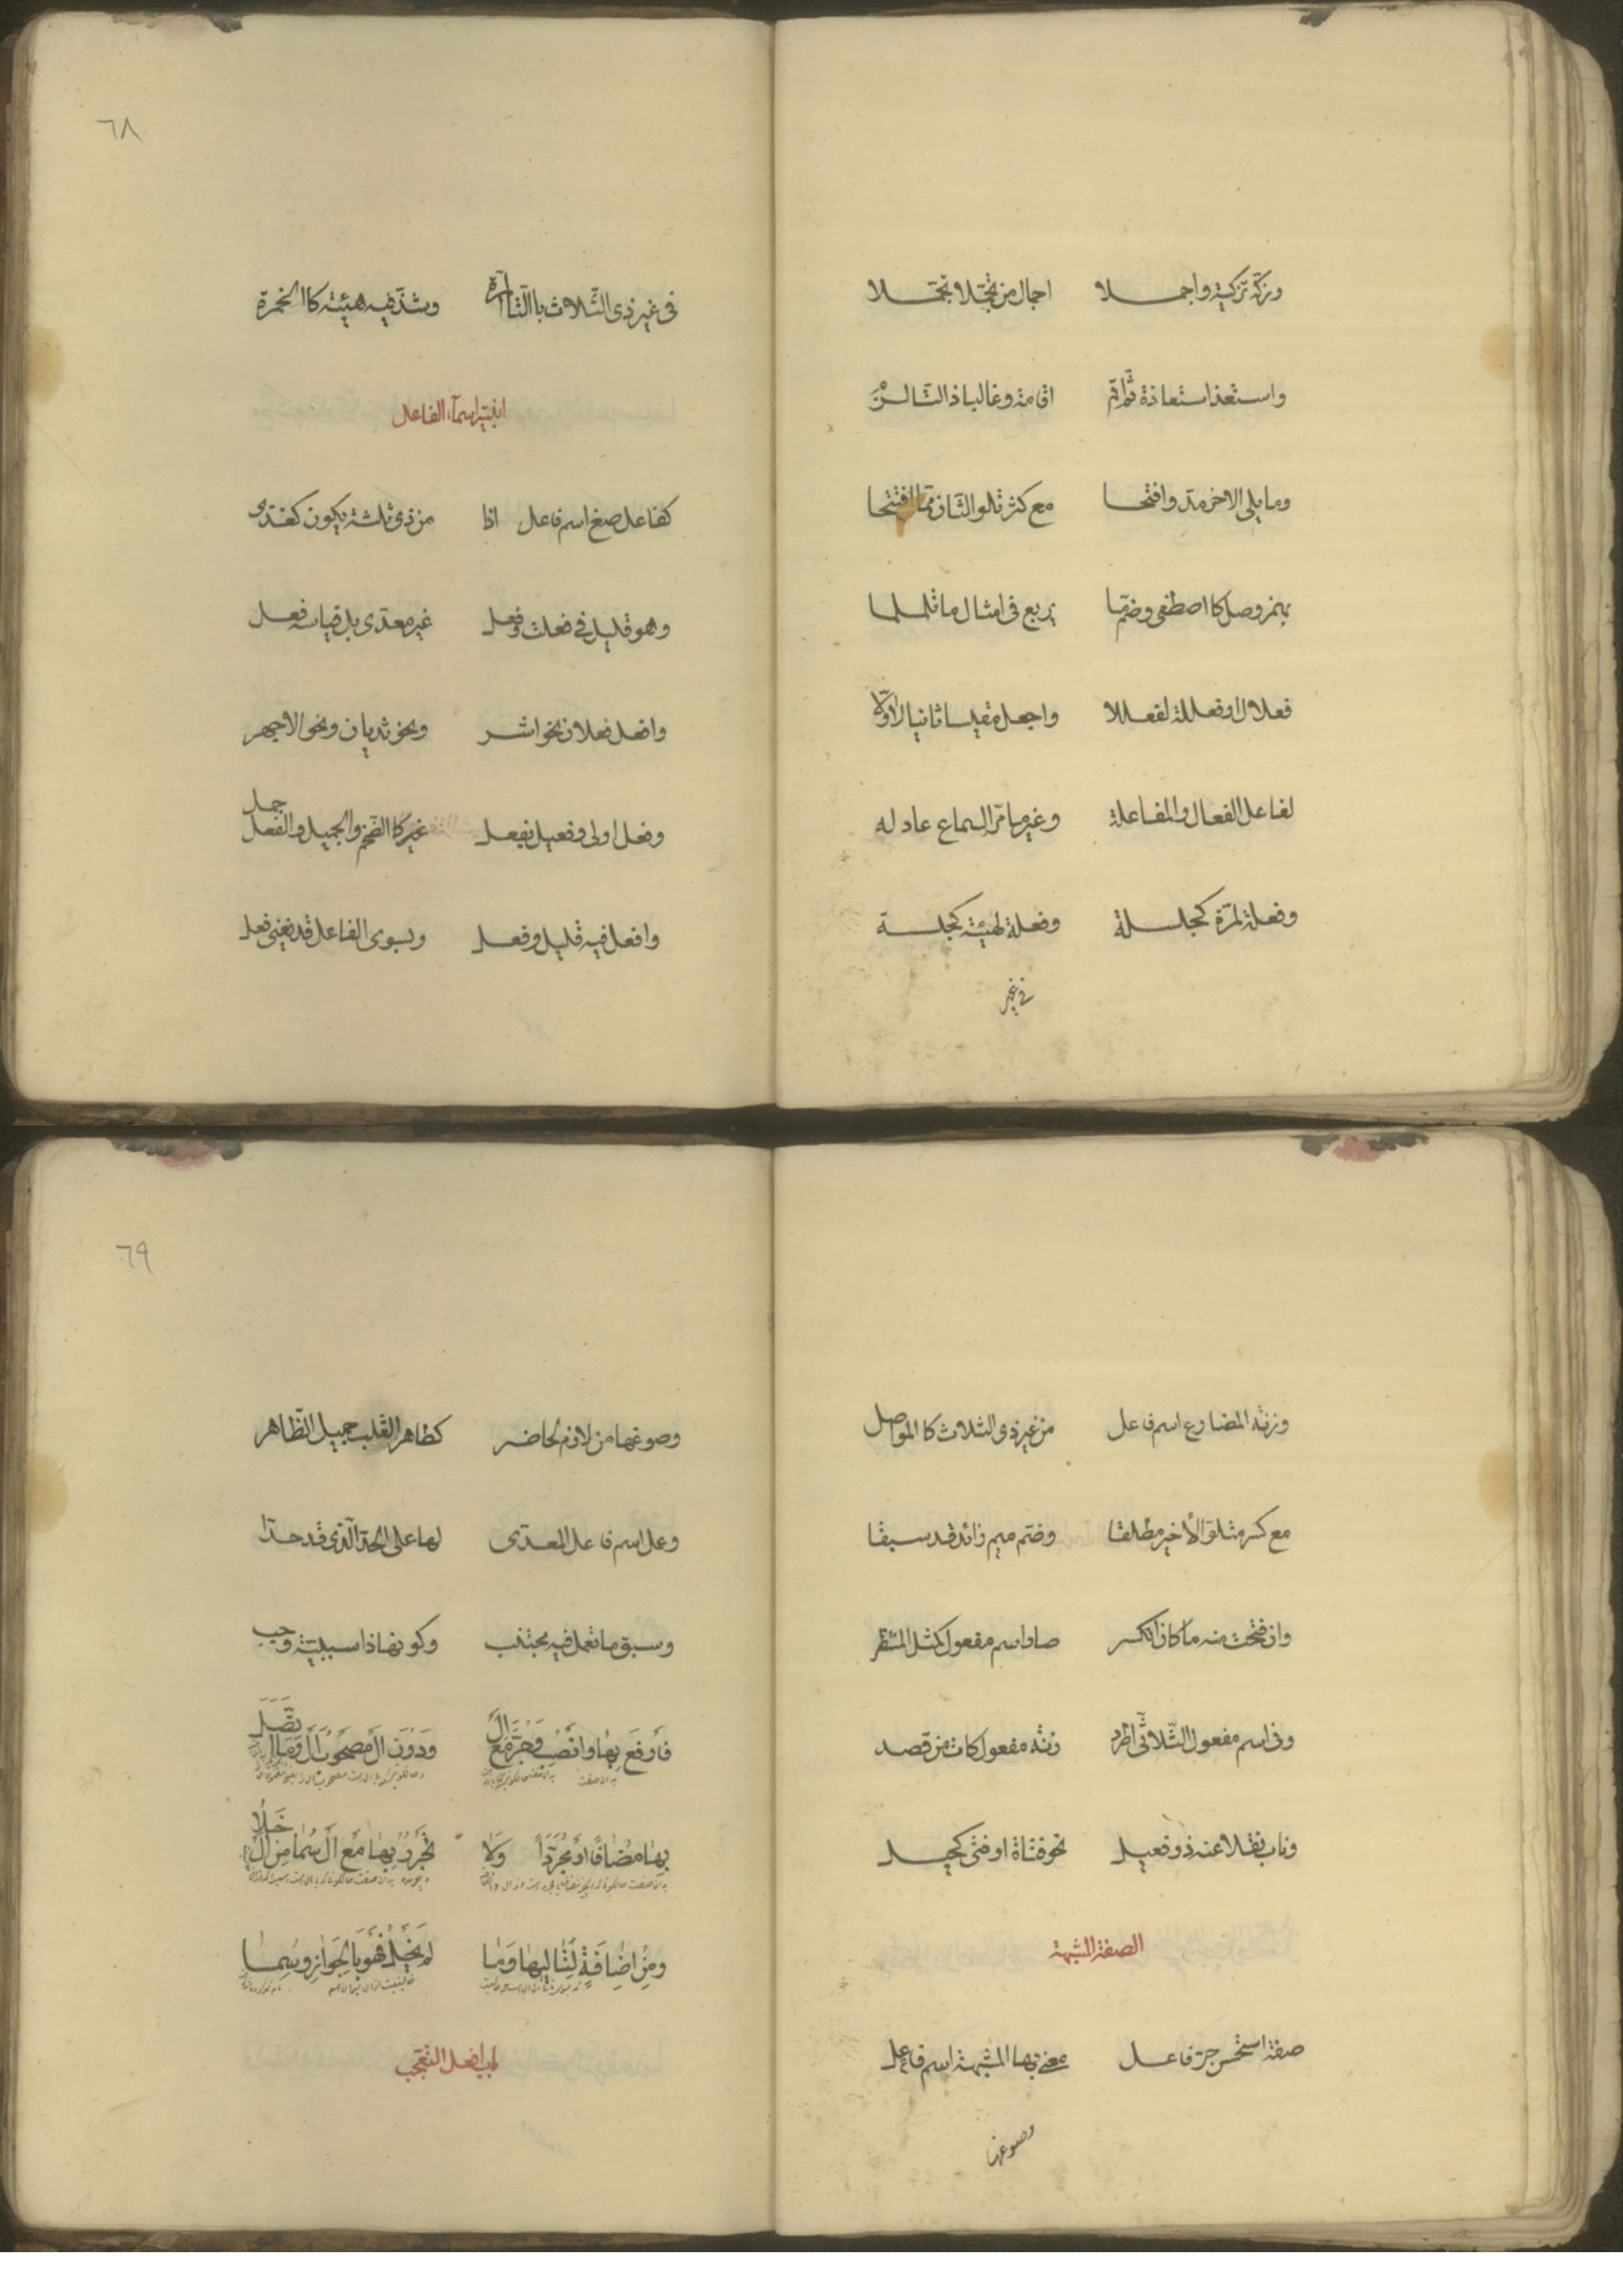 وزكّه تزكية واجملا اجمال من تجمّلا تجمّلا
واستعذ استعاذة ثمّ اقم اقامة وغالبا ذا التا لزم
وما يلى الاخر مد وافتحا مع كثر تلو الثان مما افتتحا
بهمز وصل كا اصطفى وضمّ ما يربع فى امثال ما تلملما
فعلال او فعللة لفعللا واجعل مقيسا ثانيا لا اوّلا
لفاعل الفعال والمفاعلة وغير ما مرّ السماع عادله
وفعلة لمرّة كجلسلة وفعلة لهيئة كجلسة
فى غير
٦٨
فى غير ذى الثّلاث با التّا المرّة وشذّ فيه هيئة كا الخمرة
ابنية اسمآء الفاعل
كفاعل صغ اسم فاعل اذا من ذى ثلثة يكون كغذى
وهو قليل فى فعلت وفعل غير معدّى بل قياسه فعل
وافعل فعلان نحو اشر ونحو ثديان ونحو الاجهر
وفعل اولى وفعيل بفعل غير كا الضّخم والجميل والفعل جمل
وافعل فيه قليل وفعل وبسوى الفاعل قد يغنى فعل
وزنة المضارع اسم فاعل من غير ذى الثلاث كا المواصل
مع كسر متلوّ الأخير مطلقا وضمّ ميم زائد قد سبقا
وان فتحت منه ما كان انكسر صار اسم مفعول كمثل المنتظر
وفى اسم مفعول الثّلاثّى اطّرد زنة مفعول كات من قصد
وناب نقلا عنه ذو فعيل نحو فتاة او فتى كحيل
الصفة المشبهة
صفة استحسن جرّ فاعل معنى بها المشبهة اسم فاعل
وصوغها
٦٩
وصوغها من لازم لحاضر كطاهر القلب جميل الظّاهر
وعمل اسم فاعل المعدّى لها على الحدّ الّذى قد حدّا
وسبق ما تعمل فيه مجتنب وكونها ذا سببيّة وجب
فَارْفَعْ بِهَا وَانْصِبْ وَجُرَّ مَعَ الْ وَدُوَنَ الْ مَصْحُوبَ الْ وَمَا اتَّصَلَ
بِهَا مُضَافًا اَوْ مُجَرَّدًا وَلَا تَجْرُرْ بِهَا مَعَ الْ سُمًا مِنَ الْ خَلَا
ومِنْ اِضَافَةٍ لِتَالِيهَا وَمَا لَمْ يَخْلُ فَهْوَ بِالْجَوَازِ وُسِمَا
باب افعل التعجب